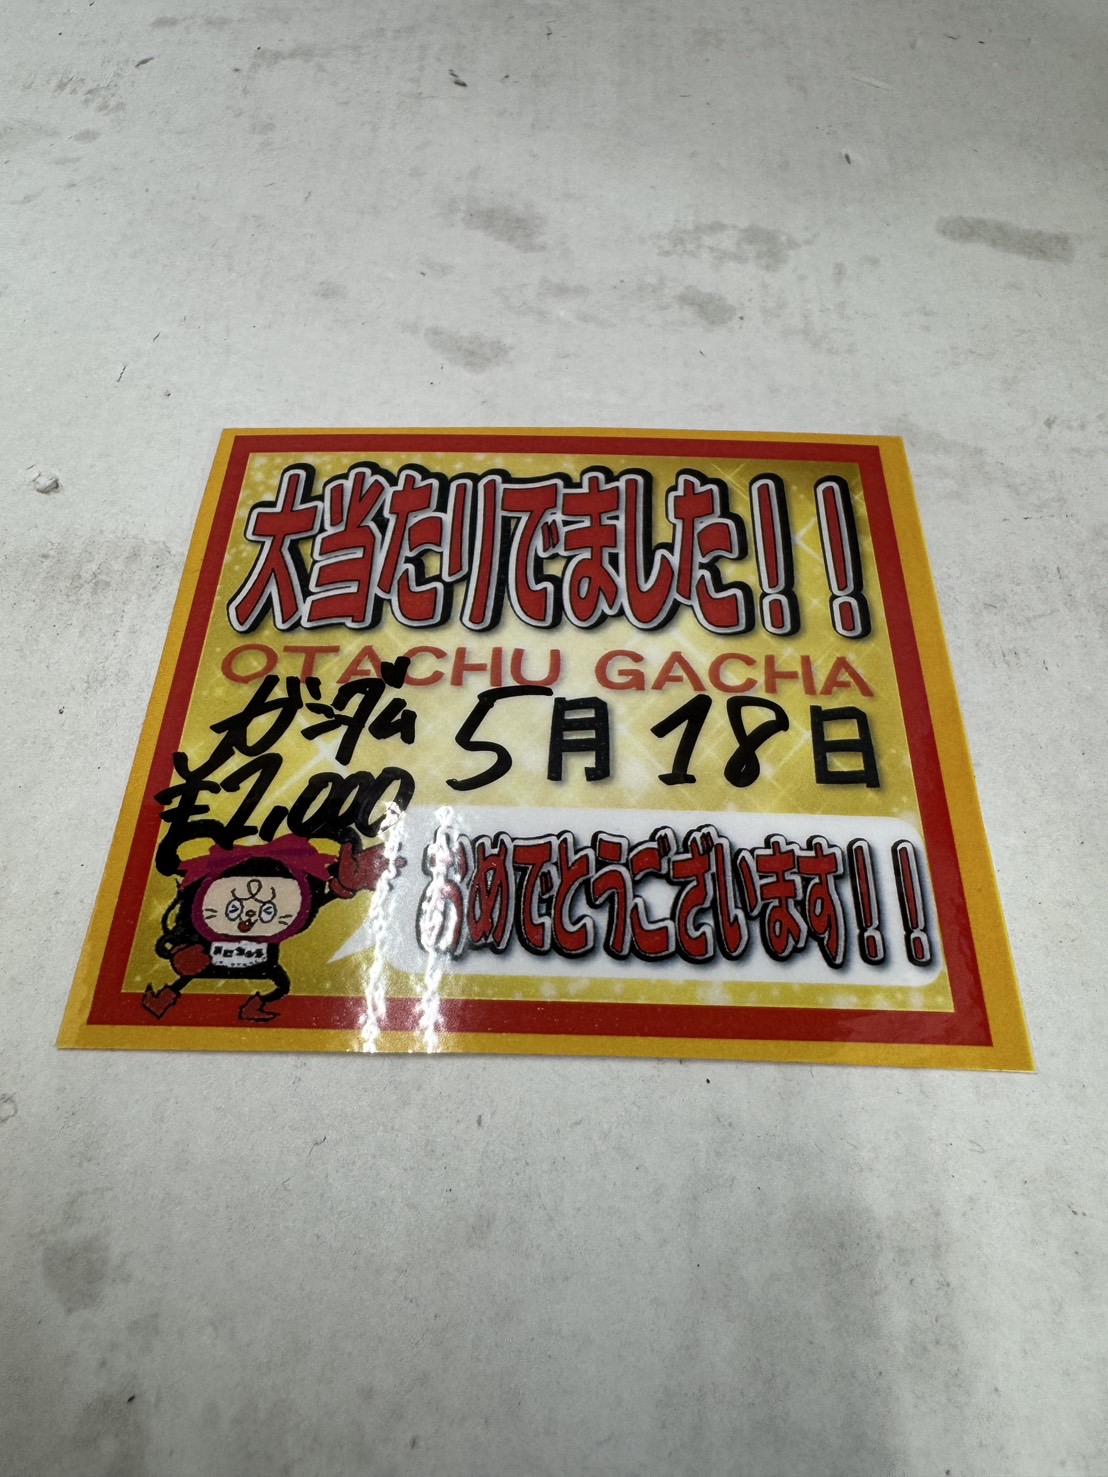 大当たりでました!!
OTACHU GACHA
ガンダム
5月18日
¥1,000
おめでとうございます!!